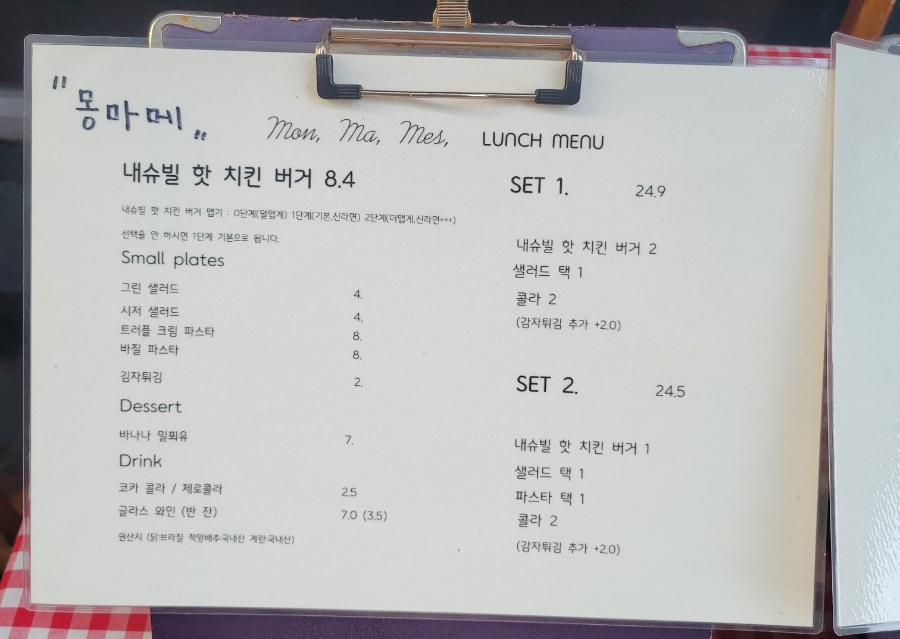 "몽마메"
Mon, Ma, Mes, LUNCH MENU
내슈빌 핫 치킨 버거 8.4
내슈빌 핫 치킨 버거 맵기 : 0단계(덜맵게) 1단계(기본,신라면) 2단계(더맵게,신라면+++)
선택을 안 하시면 1단계 기본으로 됩니다.
Small plates
그린 샐러드 4.
시저 샐러드 4.
트러플 크림 파스타 8.
바질 파스타 8.
김자튀김 2.
Dessert
바나나 밀푀유 7.
Drink
코카 콜라 / 제로콜라 2.5
글라스 와인 (반 잔) 7.0 (3.5)
원산지 (닭:브라질 적양배추:국내산 계란:국내산)
SET 1. 24.9
내슈빌 핫 치킨 버거 2
샐러드 택 1
콜라 2
(감자튀김 추가 +2.0)
SET 2. 24.5
내슈빌 핫 치킨 버거 1
샐러드 택 1
파스타 택 1
콜라 2
(감자튀김 추가 +2.0)